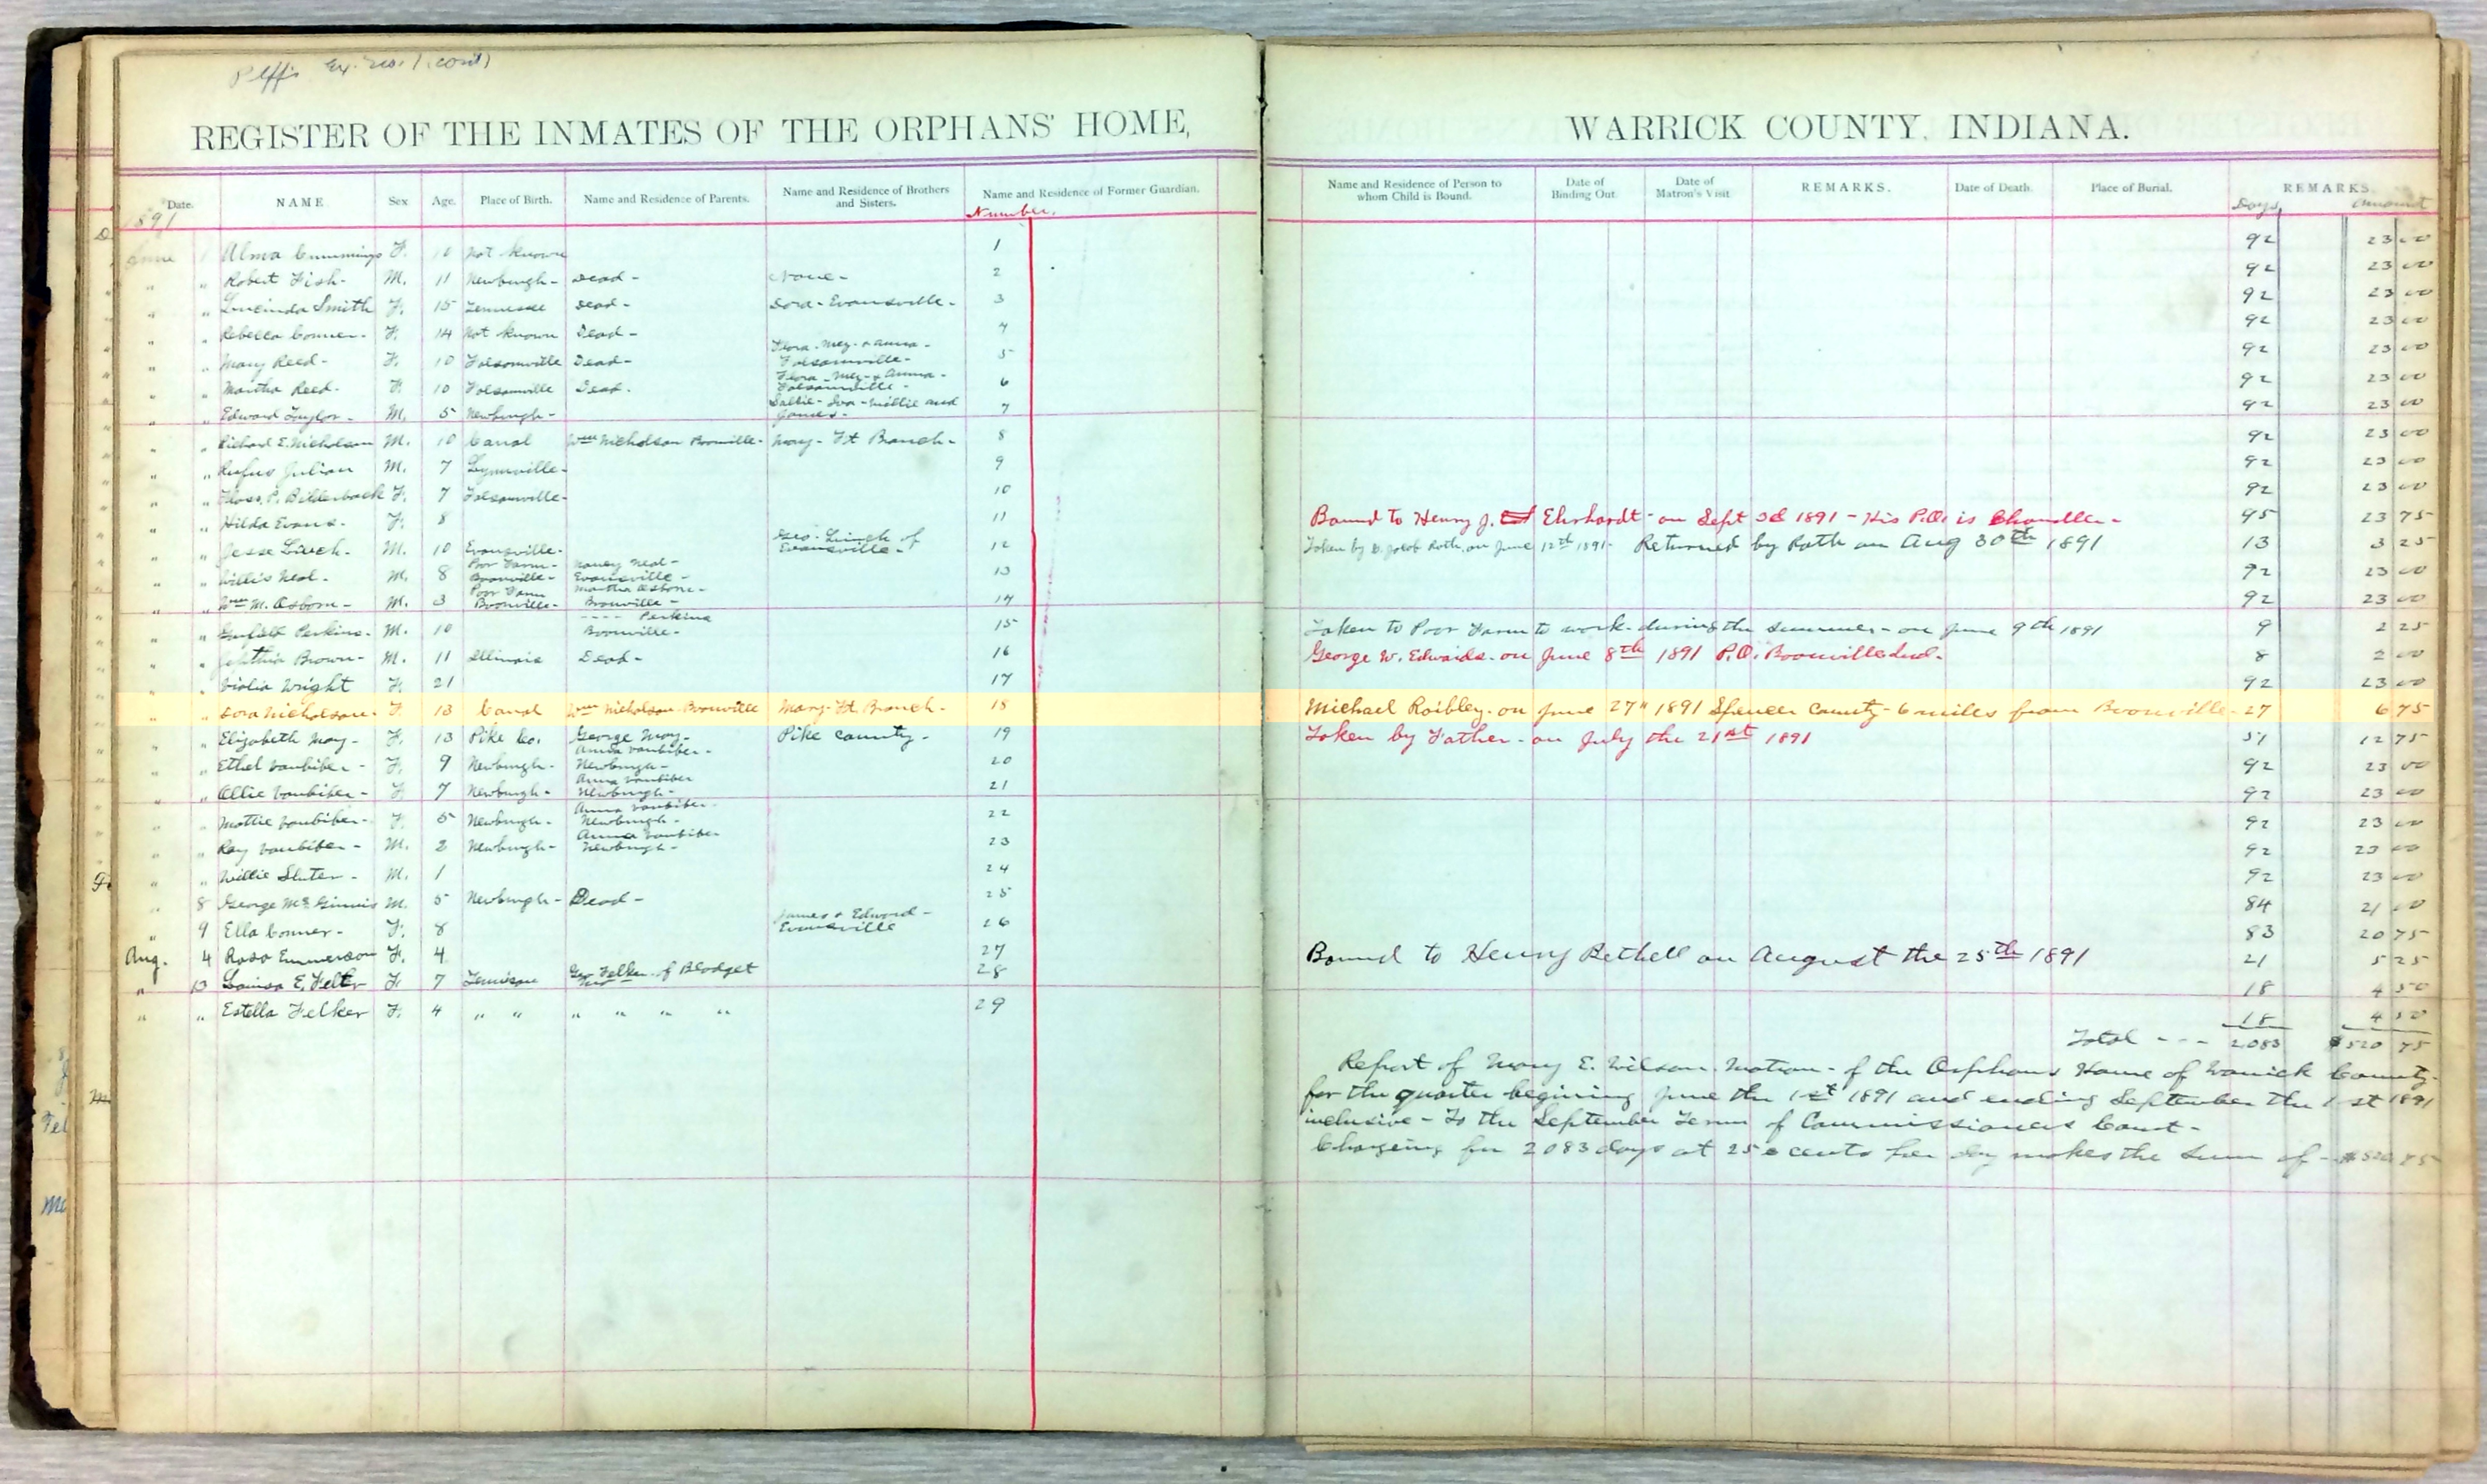 Plffs Ex. No. 1 (cont)
REGISTER OF THE INMATES OF THE ORPHANS' HOME, WARRICK COUNTY, INDIANA.
Date. NAME. Sex Age. Place of Birth. Name and Residence of Parents. Name and Residence of Brothers and Sisters. Name and Residence of Former Guardian. Name and Residence of Person to whom Child is Bound. Date of Binding Out. Date of Matron's Visit. REMARKS. Date of Death. Place of Burial. REMARKS.
1891 Number. Days Amount
June 1 Alma Cummings F. 10 Not known 1 92 23 00
" " Robert Fish - M. 11 Newburgh - Dead - None - 2 92 23 00
" " Lucinda Smith F. 15 Tennessee Dead - Dora - Evansville - 3 92 23 00
" " Rebecca Conner - F. 14 Not known Dead - 4 92 23 00
" " Mary Reed - F. 10 Folsomville Dead - Flora - Mez - & Anna - Folsomville - 5 92 23 00
" " Martha Reed - F. 10 Folsomville Dead - Flora - Mez - & Anna - Folsomville - 6 92 23 00
" " Edward Taylor - M. 5 Newburgh - Sallie - Ira - Millie and James - 7 92 23 00
" " Richard E. Nicholson M. 10 Canal Wm Nicholson Boonville - Mary - Ft Branch - 8 92 23 00
" " Rufus Julian M. 7 Lynnville - 9 92 23 00
" " Floss. P. Bilderback F. 7 Folsomville - 10 92 23 00
" " Hilda Evans - F. 8 11 Bound to Henry J. Ehrhardt - on Sept 3d 1891 - His P.O. is Chandler - 95 23 75
" " Jesse Linch - M. 10 Evansville - Geo. Linch of Evansville - 12 Taken by D. Jacob Roth, on June 12th 1891 - Returned by Roth on Aug 30th 1891 13 3 25
" " Willis Neal - M. 8 Poor Farm - Boonville - Nancy Neal - Evansville - 13 92 23 00
" " Wm M. Osborn - M. 3 Poor Farm Boonville - Martha Osborn - Boonville - 14 92 23 00
" " Garfield Perkins - M. 10 - - - - Perkins Boonville - 15 Taken to Poor Farm to work during the summer - on June 9th 1891 9 2 25
" " Jephthia Brown - M. 11 Illinois Dead - 16 George W. Edwards - on June 8th 1891 P.O. Boonville Ind. 8 2 00
" " Violia Wright F. 21 17 92 23 00
" " Dora Nicholson - F. 13 Canal Wm Nicholson - Boonville Mary - Ft. Branch - 18 Michael Roibley - on June 27" 1891 Spencer County - 6 miles from Boonville - 27 6 75
" " Elizabeth May - F. 13 Pike Co. George May - Pike County - 19 Taken by Father - on July the 21st 1891 51 12 75
" " Ethel Vanbiber - F. 9 Newburgh - Anna Vanbiber - Newburgh - 20 92 23 00
" " Ollie Vanbiber - F. 7 Newburgh - Anna Vanbiber Newburgh - 21 92 23 00
" " Mottie Vanbiber - F. 5 Newburgh - Anna Vanbiber - Newburgh - 22 92 23 00
" " Ray Vanbiber - M. 2 Newburgh - Anna Vanbiber Newburgh - 23 92 23 00
" " Willie Sluter - M. 1 24 92 23 00
" 8 George McGinnis M. 5 Newburgh - Dead - 25 84 21 00
" 9 Ella Conner - F. 8 James & Edward - Evansville 26 83 20 75
Aug. 4 Rosa Emmerson F. 4 27 Bound to Henry Bethell on August the 25th 1891 21 5 25
" 13 Louisa E. Felker F. 7 Felker of Blodget 28 18 4 50
" " Estella Felker F. 4 " " " " " " 29 18 4 50
Total - - - 2083 $520 75
Report of Mary E. Wilson. Matron - of the Orphans Home of Warrick County -
for the quarter begining June the 1st 1891 and ending September the 1st 1891
inclusive - To the September Term of Commissioners Court -
Chargeing for 2083 days at 25 cents per day makes the sum of - $520 75